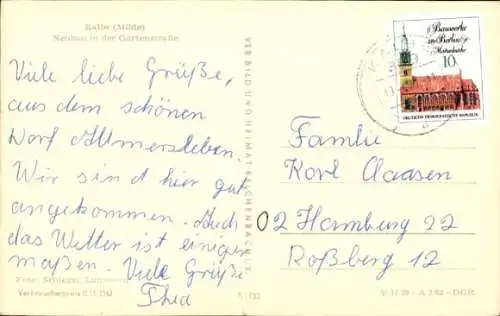 Kalbe (Milde)
Neubau in der Gartenstraße
Viele liebe Grüße,
aus dem schönen
Dorf Altmersleben.
Wir sind hier gut
angekommen. Auch
das Wetter ist einiger
maßen. Viele Grüße
Thea
Verkaufspreis
VERBILD UND HEIMAT REICHENBACH I. V.
Bauwerke
in Berlin
Marienkirche
10
DEUTSCHE DEMOKRATISCHE REPUBLIK
Familie
Karl Claasen
02 Hamburg 22
Roßberg 12
DDR